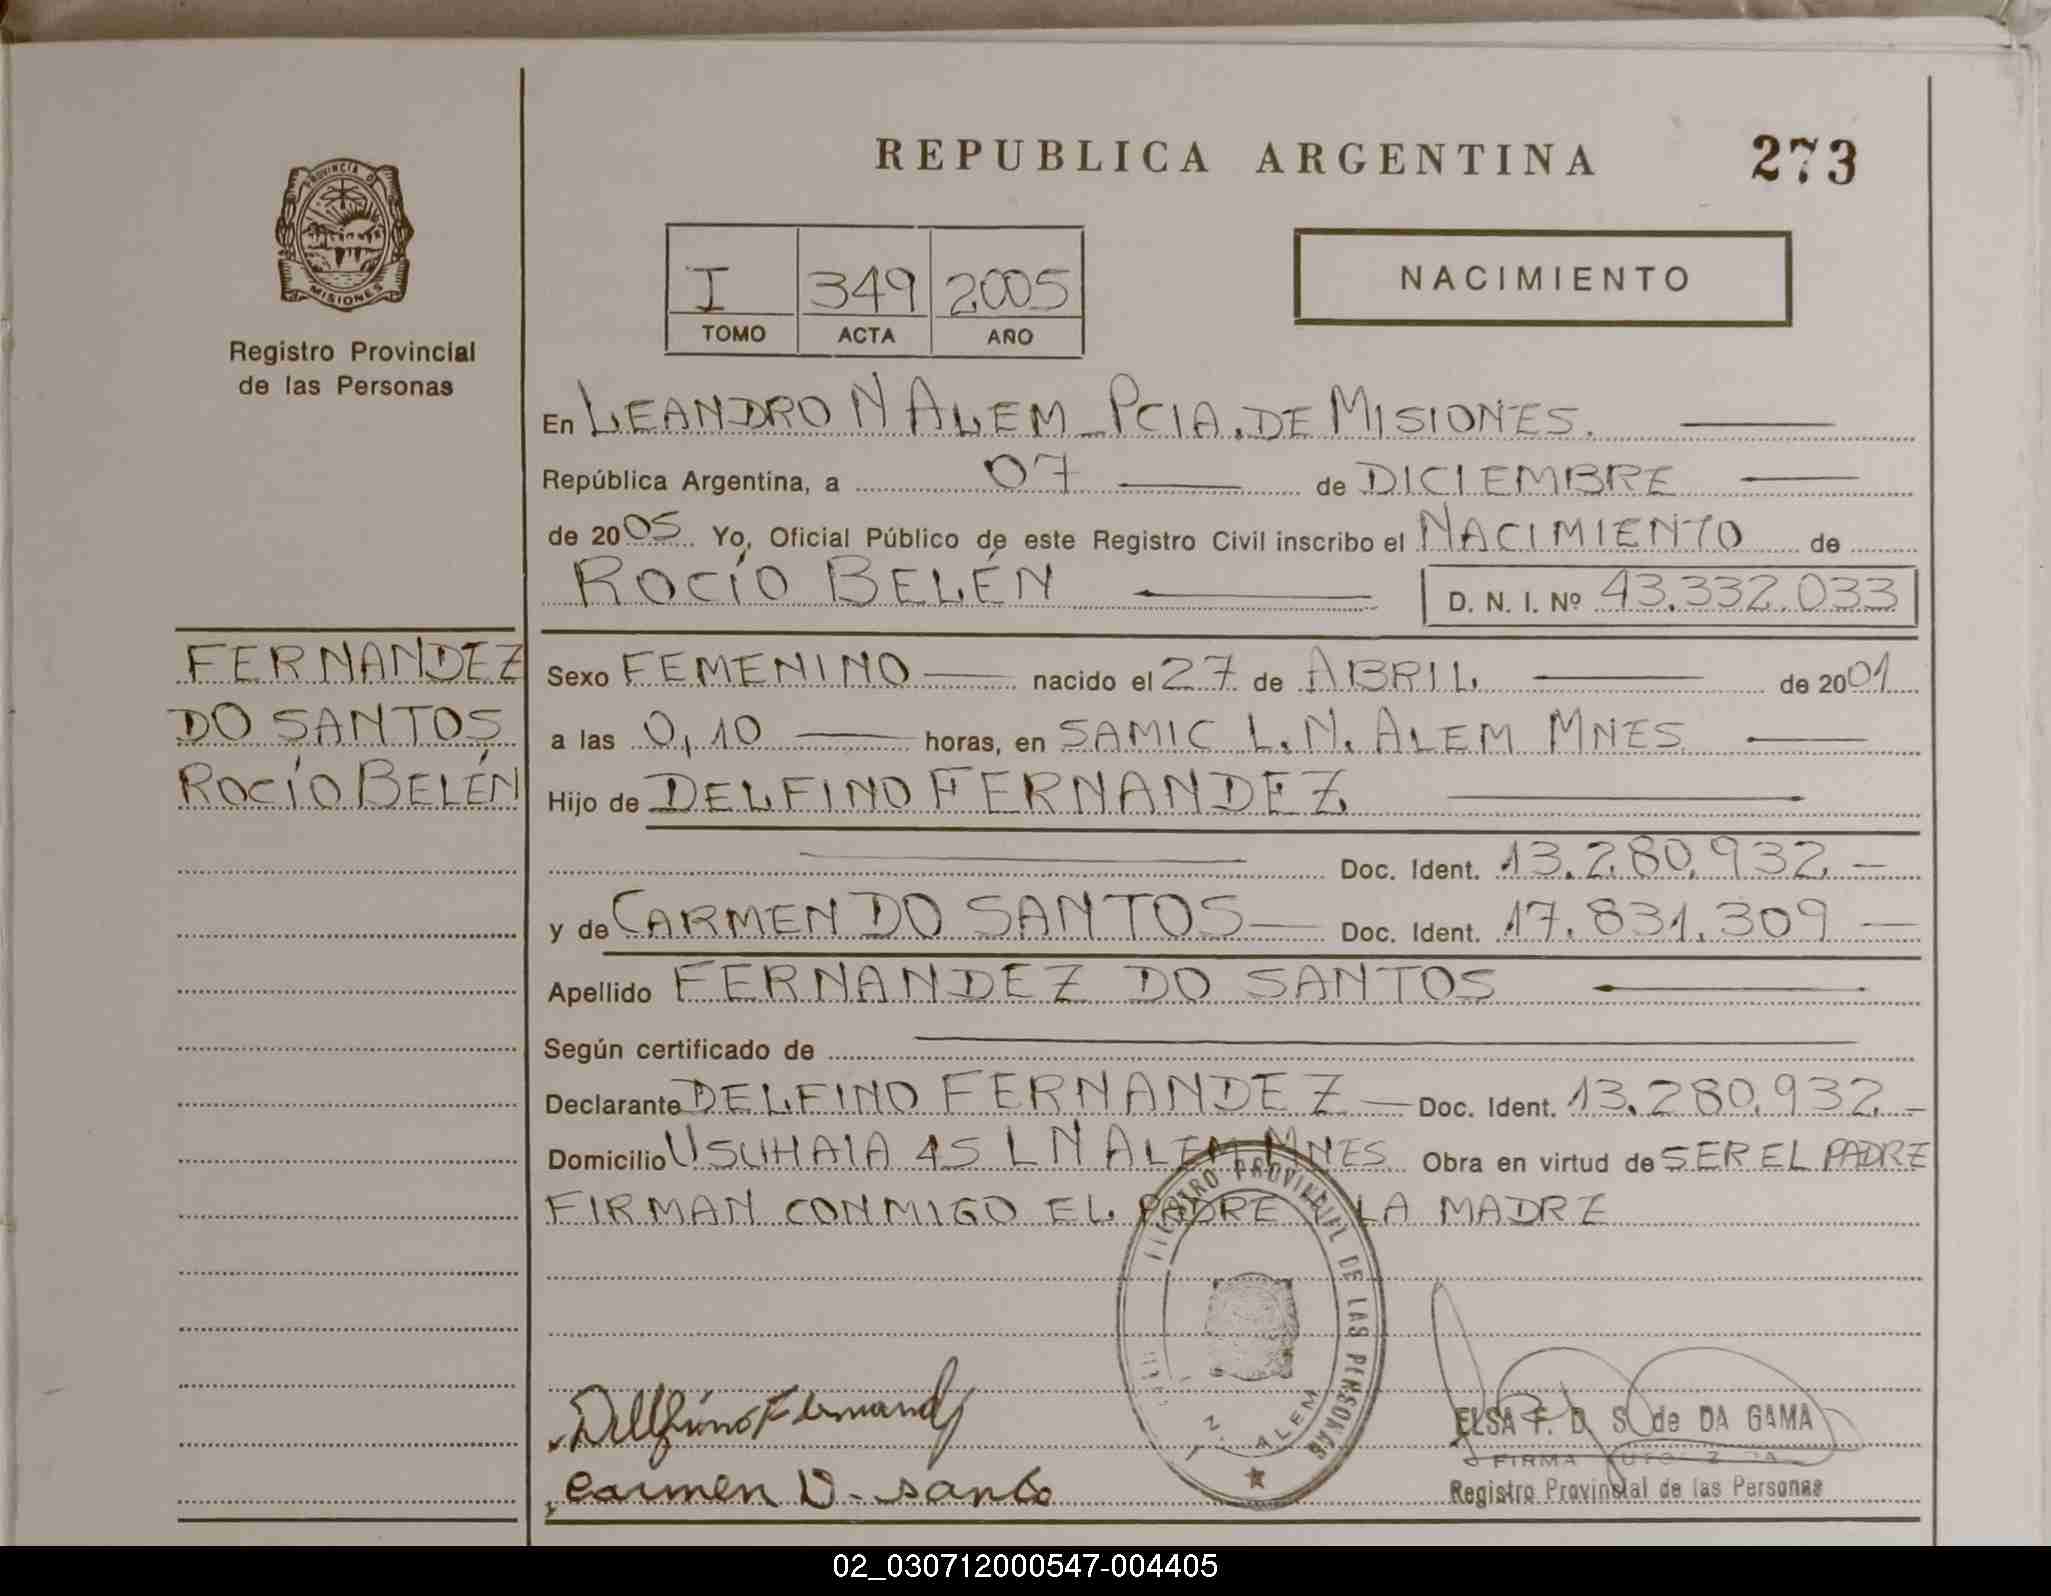 REPUBLICA ARGENTINA 273
PROVINCIA D
MISIONES
Registro Provincial
de las Personas
I 349 2005
TOMO ACTA AÑO
NACIMIENTO
En LEANDRO N ALEM - PCIA. DE MISIONES.
República Argentina, a 07 de DICIEMBRE
de 2005 Yo, Oficial Público de este Registro Civil inscribo el NACIMIENTO de
ROCÍO BELÉN D. N. I. Nº 43.332.033
FERNANDEZ
DO SANTOS
ROCÍO BELÉN
Sexo FEMENINO nacido el 27 de ABRIL de 2001
a las 0,10 horas, en SAMIC L. N. ALEM MNES
Hijo de DELFINO FERNANDEZ
Doc. Ident. 13.280.932
y de CARMEN DO SANTOS Doc. Ident. 17.831.309
Apellido FERNANDEZ DO SANTOS
Según certificado de
Declarante DELFINO FERNANDEZ Doc. Ident. 13.280.932
Domicilio USUHAIA 45 L N ALEM MNES Obra en virtud de SER EL PADRE
FIRMAN CONMIGO EL PADRE Y LA MADRE
PROVINCIAL DE LAS PERSONAS
ALEM
Delfino Fernand
Carmen D. santo
ELSA F. D. S. de DA GAMA
FIRMA
Registro Provincial de las Personas
02_030712000547-004405